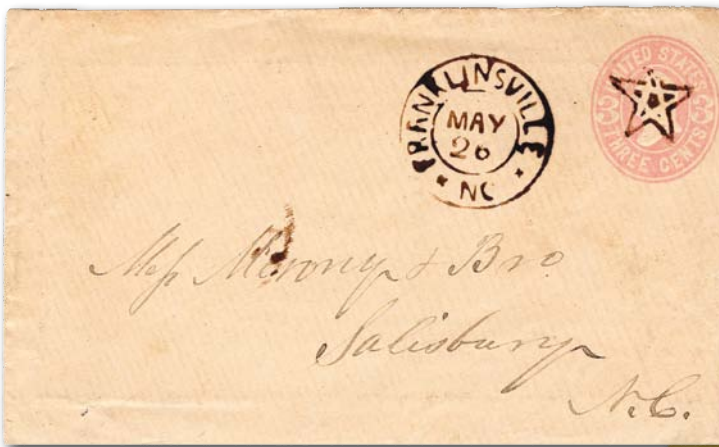 FRANKLINSVILLE
MAY
26
* NC *
UNITED STATES
3 3
THREE CENTS
Mess Meroney & Bro
Salisbury
N.C.